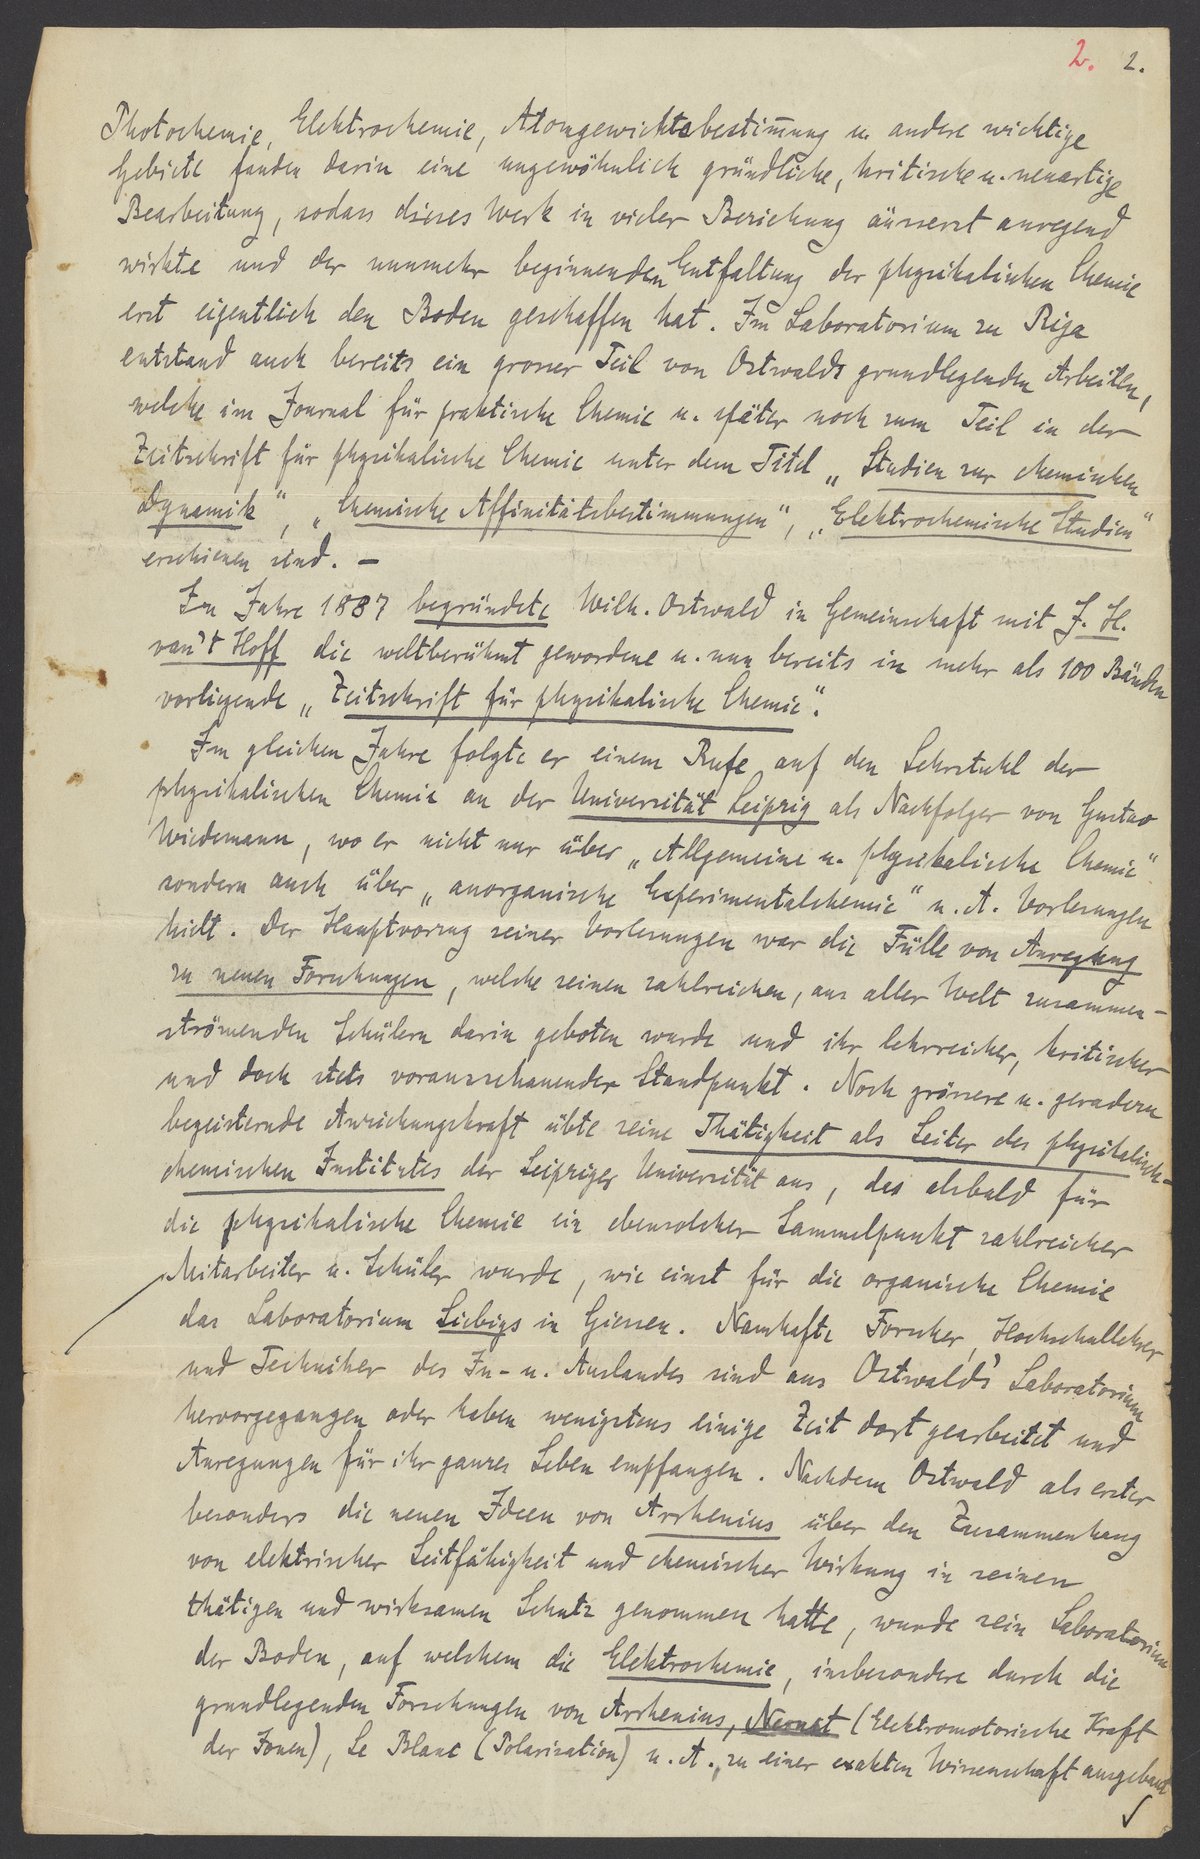 2. 2.
Photochemie, Elektrochemie, Atomgewichtsbestim̄ung u. andere wichtige
Gebiete fanden darin eine ungewöhnlich gründliche, kritische u. neuartige
Bearbeitung, sodass dieses Werk in vieler Beziehung äusserst anregend
wirkte und der nunmehr beginnenden Entfaltung der physikalischen Chemie
erst eigentlich den Boden geschaffen hat. Im Laboratorium zu Riga
entstand auch bereits ein grosser Teil von Ostwalds grundlegenden Arbeiten,
welche im Journal für praktische Chemie u. später noch zum Teil in der
Zeitschrift für physikalische Chemie unter dem Titel „Studien zur chemischen
Dynamik“, „Chemische Affinitätsbestimmungen“, „Elektrochemische Studien“
erschienen sind. –
Im Jahre 1887 begründete Wilh. Ostwald in Gemeinschaft mit J. H.
van't Hoff die weltberühmt gewordene u. nun bereits in mehr als 100 Bänden
vorliegende „Zeitschrift für physikalische Chemie“.
Im gleichen Jahre folgte er einem Rufe auf den Lehrstuhl der
physikalischen Chemie an der Universität Leipzig als Nachfolger von Gustav
Wiedemann, wo er nicht nur über „Allgemeine u. physikalische Chemie“
sondern auch über „anorganische Experimentalchemie“ u. A. Vorlesungen
hielt. Der Hauptvorzug seiner Vorlesungen war die Fülle von Anregung
zu neuen Forschungen, welche seinen zahlreichen, aus aller Welt zusammen-
strömenden Schülern darin geboten wurde und ihr lehrreicher, kritischer
und doch stets vorausschauender Standpunkt. Noch grössere u. geradezu
begeisternde Anziehungskraft übte seine Thätigkeit als Leiter des physikalisch-
chemischen Institutes der Leipziger Universität aus, das alsbald für
die physikalische Chemie ein ebensolcher Sammelpunkt zahlreicher
Mitarbeiter u. Schüler wurde, wie einst für die organische Chemie
das Laboratorium Liebigs in Giessen. Namhafte Forscher, Hochschullehrer
und Techniker des In- u. Auslandes sind aus Ostwald's Laboratorium
hervorgegangen oder haben wenigstens einige Zeit dort gearbeitet und
Anregungen für ihr ganzes Leben empfangen. Nachdem Ostwald als erster
besonders die neuen Ideen von Arrhenius über den Zusammenhang
von elektrischer Leitfähigkeit und chemischer Wirkung in seinen
thätigen und wirksamen Schutz genommen hatte, wurde sein Laboratorium
der Boden, auf welchem die Elektrochemie, insbesondere durch die
grundlegenden Forschungen von Arrhenius, Nernst (Elektromotorische Kraft
der Ionen), Le Blanc (Polarisation) u. A., zu einer exakten Wissenschaft ausgebaut